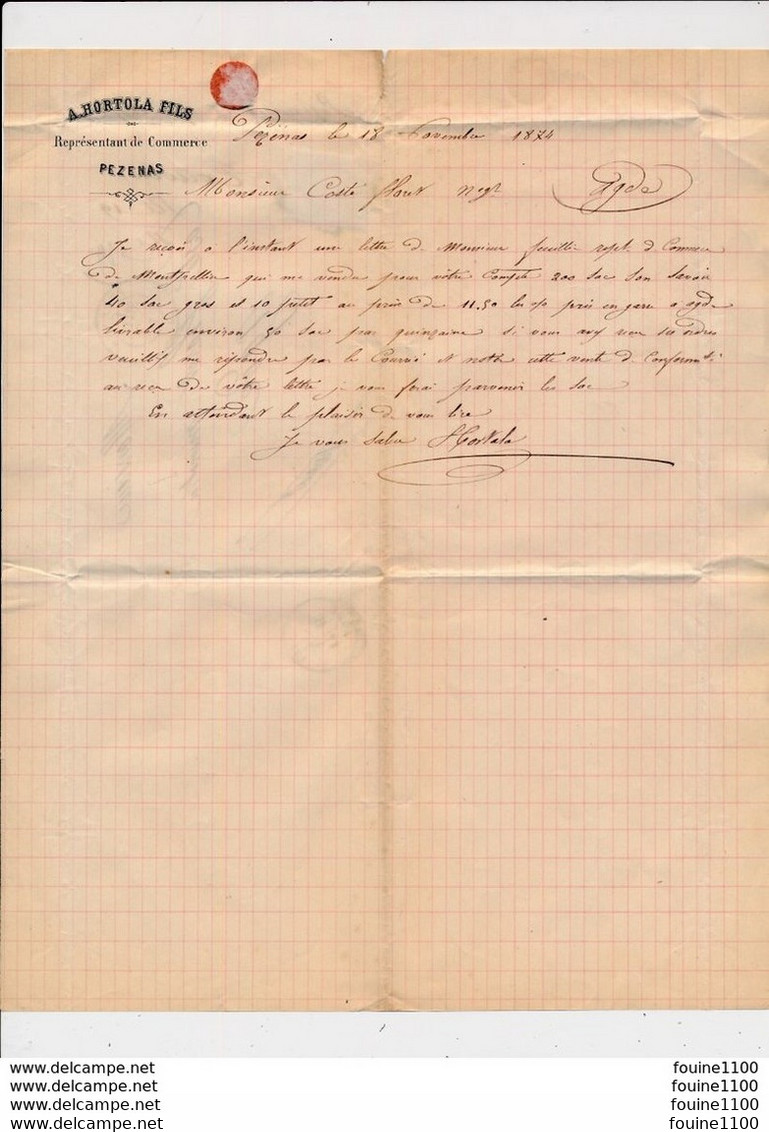 A. HORTOLA FILS
Représentant de Commerce
PEZENAS
Pezénas le 18 Novembre 1874
Monsieur Coste floret Negt Agde
Je reçois a l'instant une lettre de Monsieur feuillé rept. d Commerce
de Montpellier qui me vendu pour vôtre Compte 200 sac son savoir
40 sac gros et 10 petit au prix de 11.50 les %o pris en gare a agde
livrable environ 50 sac par quinzaine si vous avez vous
veuillez me répondre par le Courrié et notter cette vente d Conformité
au recu de vôtre lettre je vous ferai parvenir les sac
En attendant le plaisir de vous lire
Je vous salue Hortala
www.delcampe.net
www.delcampe.net
www.delcampe.net
www.delcampe.net
fouine1100
fouine1100
fouine1100
fouine1100